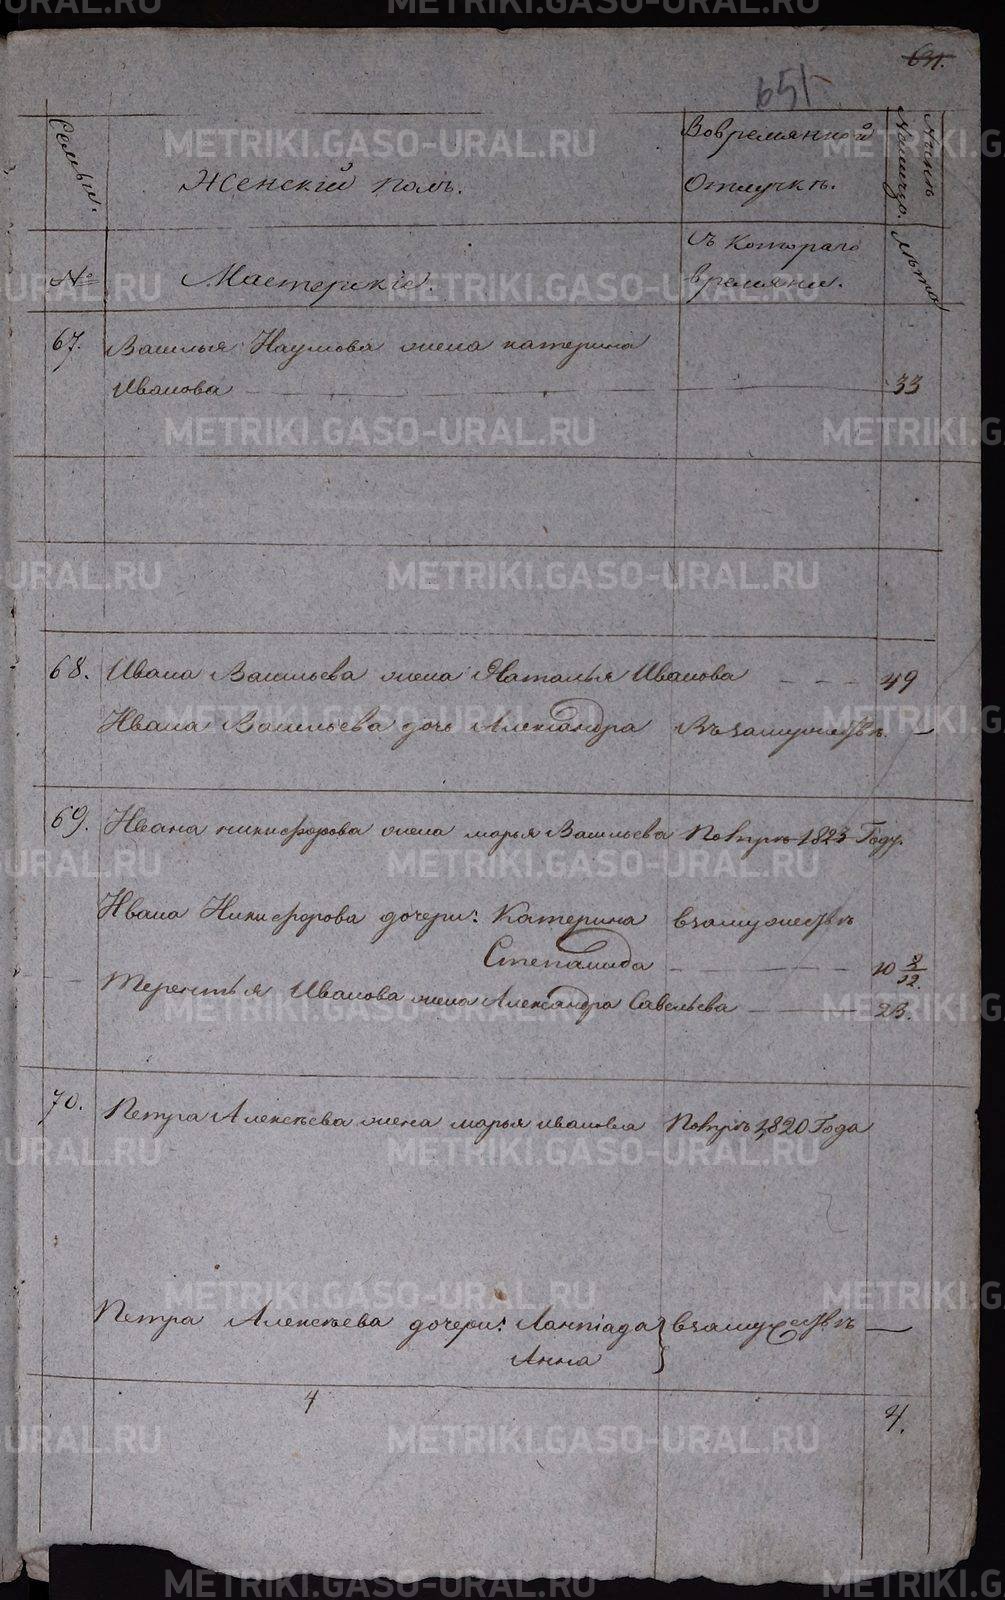 631.
651
Семьи.
Женскій полъ.
Вовремянной
Отлучкѣ.
Нынѣ
Налицо.
№
Мастерскіе.
Съ Котораго
времяни.
Лѣта
67. Василья Наумова жена катерина
Иванова 33
68. Ивана Васильева жена Наталья Иванова 49
Ивана Васильева дочь Александра Въ замужествѣ
69. Ивана никифорова жена марья Васильева 1823 Году.
Ивана Никифорова дочери: Катерина взамужествѣ
Степанида 10 8/12.
Терентья Иванова жена Александра Савельева 23.
70. Петра Алексѣева жена марья иванова 1820 Года
Петра Алексѣева дочери: взамужествѣ
Анна
4 4.
METRIKI.GASO-URAL.RU